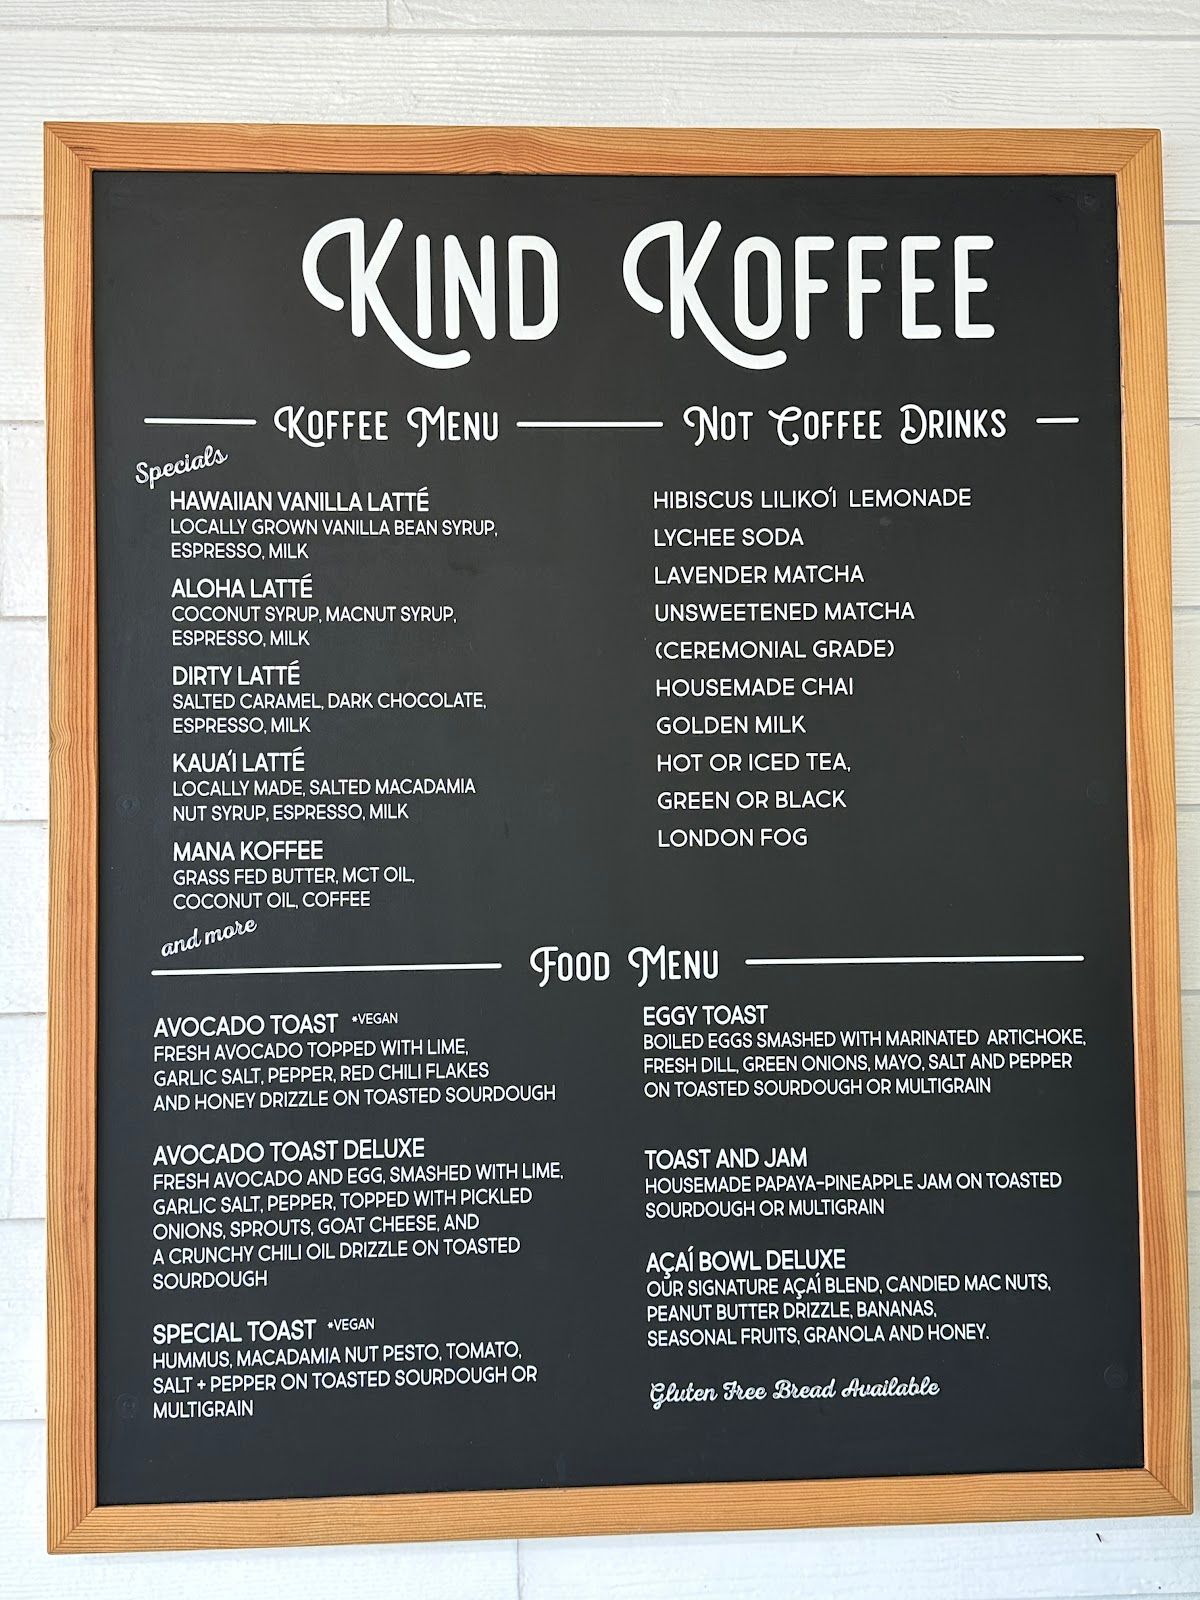 KIND KOFFEE
KOFFEE MENU
Specials
HAWAIIAN VANILLA LATTÉ
LOCALLY GROWN VANILLA BEAN SYRUP,
ESPRESSO, MILK
ALOHA LATTÉ
COCONUT SYRUP, MACNUT SYRUP,
ESPRESSO, MILK
DIRTY LATTÉ
SALTED CARAMEL, DARK CHOCOLATE,
ESPRESSO, MILK
KAUA'I LATTÉ
LOCALLY MADE, SALTED MACADAMIA
NUT SYRUP, ESPRESSO, MILK
MANA KOFFEE
GRASS FED BUTTER, MCT OIL,
COCONUT OIL, COFFEE
and more
NOT COFFEE DRINKS
HIBISCUS LILIKO'I LEMONADE
LYCHEE SODA
LAVENDER MATCHA
UNSWEETENED MATCHA
(CEREMONIAL GRADE)
HOUSEMADE CHAI
GOLDEN MILK
HOT OR ICED TEA,
GREEN OR BLACK
LONDON FOG
FOOD MENU
AVOCADO TOAST *VEGAN
FRESH AVOCADO TOPPED WITH LIME,
GARLIC SALT, PEPPER, RED CHILI FLAKES
AND HONEY DRIZZLE ON TOASTED SOURDOUGH
AVOCADO TOAST DELUXE
FRESH AVOCADO AND EGG, SMASHED WITH LIME,
GARLIC SALT, PEPPER, TOPPED WITH PICKLED
ONIONS, SPROUTS, GOAT CHEESE, AND
A CRUNCHY CHILI OIL DRIZZLE ON TOASTED
SOURDOUGH
SPECIAL TOAST *VEGAN
HUMMUS, MACADAMIA NUT PESTO, TOMATO,
SALT + PEPPER ON TOASTED SOURDOUGH OR
MULTIGRAIN
EGGY TOAST
BOILED EGGS SMASHED WITH MARINATED ARTICHOKE,
FRESH DILL, GREEN ONIONS, MAYO, SALT AND PEPPER
ON TOASTED SOURDOUGH OR MULTIGRAIN
TOAST AND JAM
HOUSEMADE PAPAYA-PINEAPPLE JAM ON TOASTED
SOURDOUGH OR MULTIGRAIN
AÇAÍ BOWL DELUXE
OUR SIGNATURE AÇAÍ BLEND, CANDIED MAC NUTS,
PEANUT BUTTER DRIZZLE, BANANAS,
SEASONAL FRUITS, GRANOLA AND HONEY.
Gluten Free Bread Available